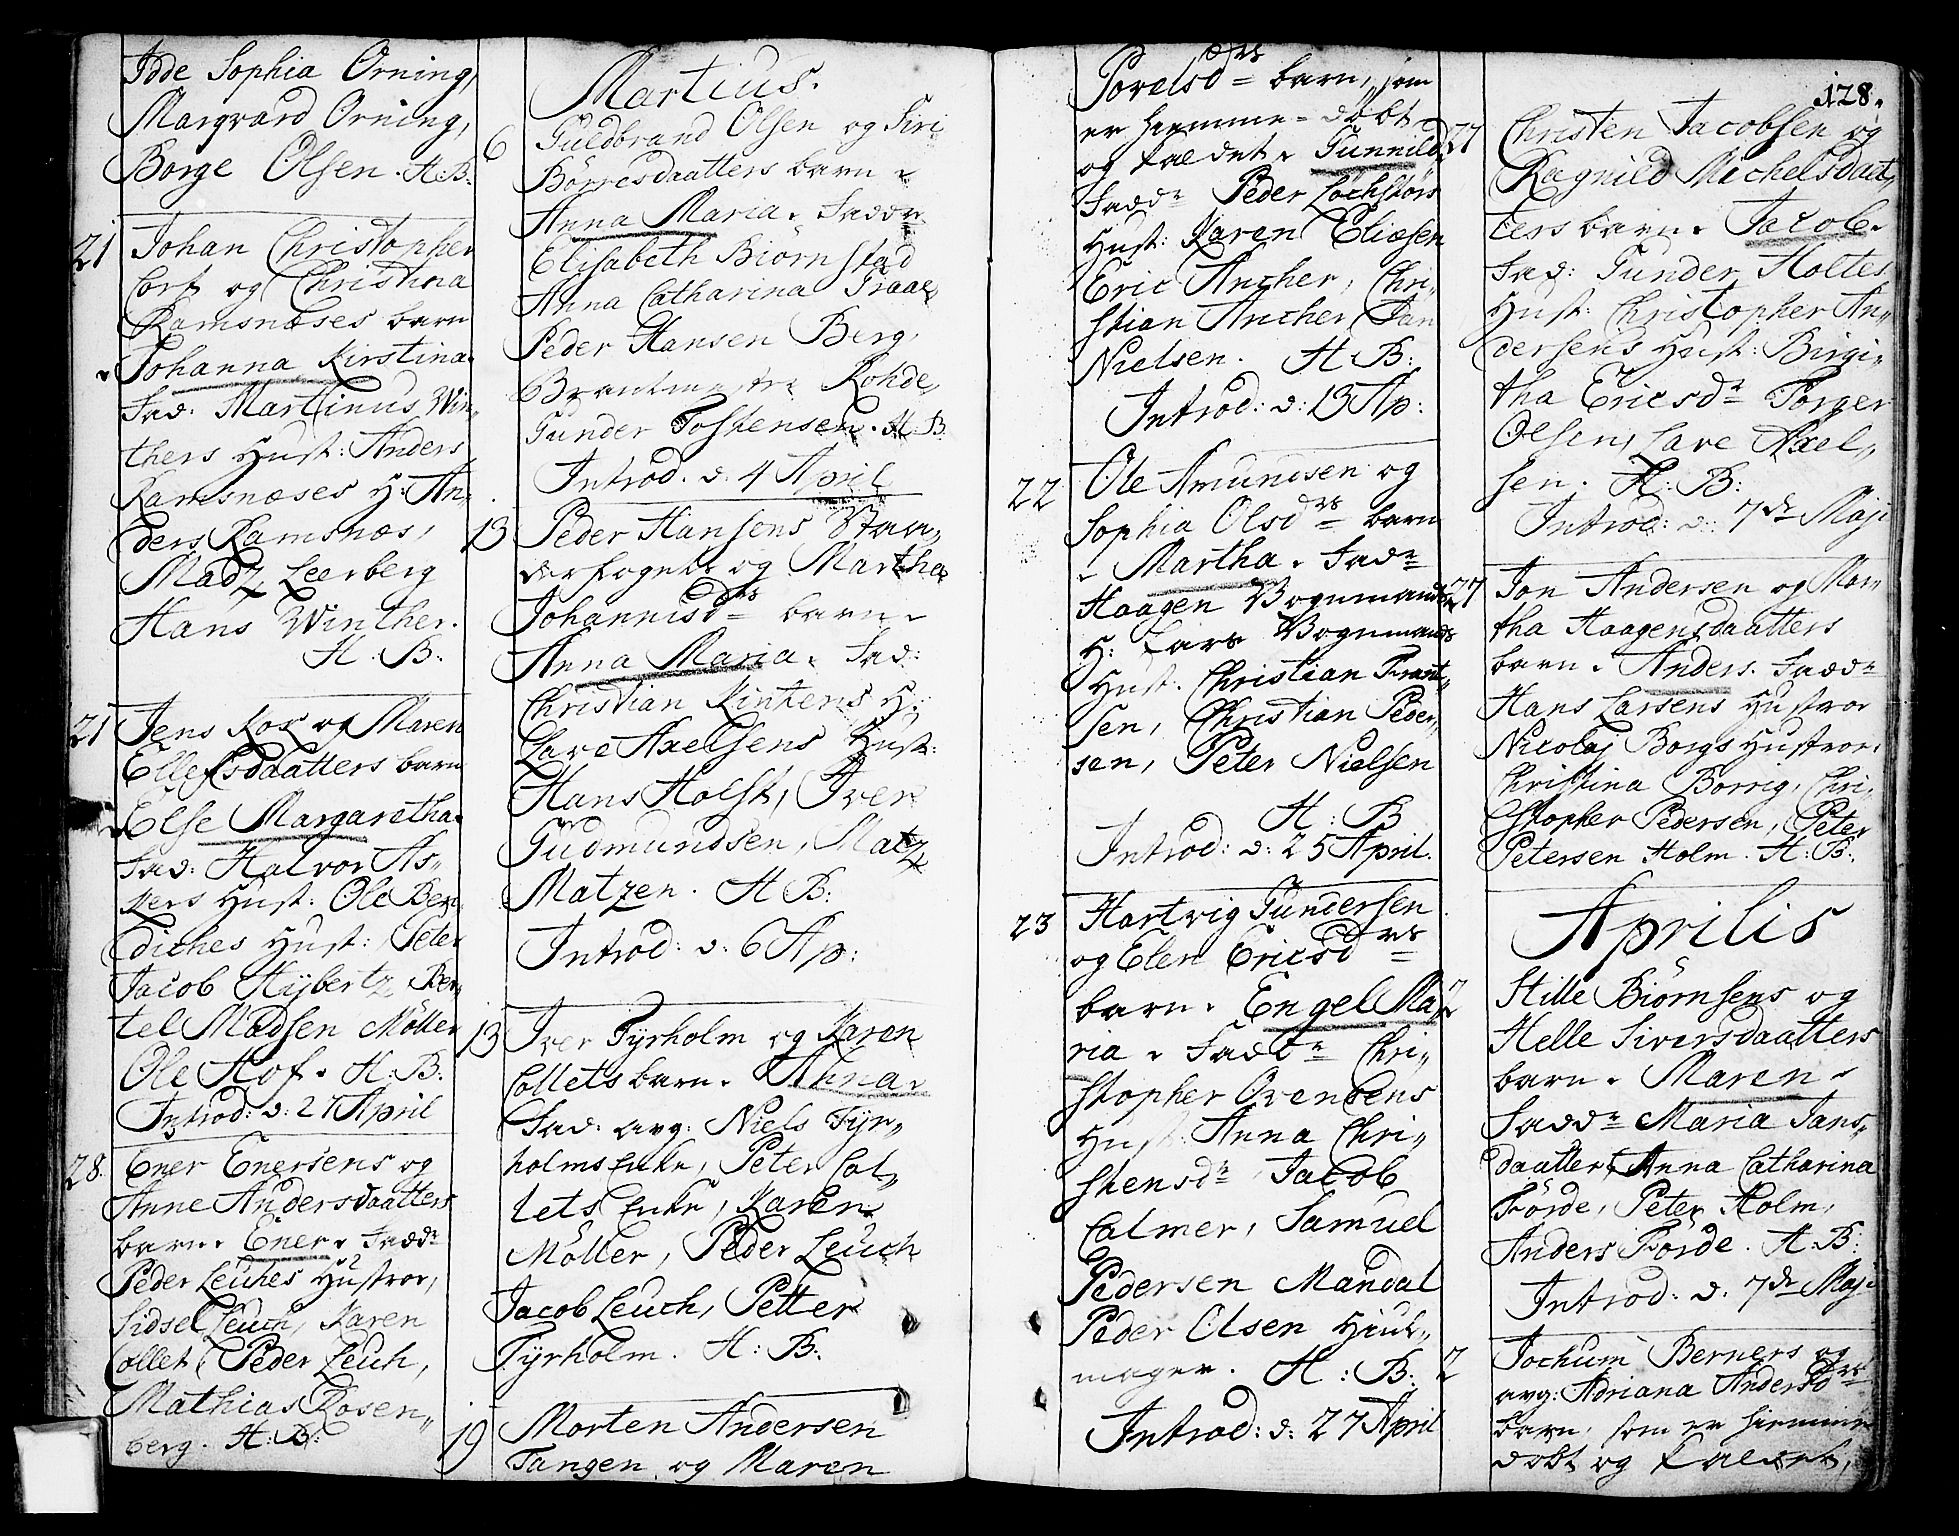 Idde Sophia Orning,
Marqvard Orning,
Borge Olsen. H:B:
21 Johan Christopher
Cort og Christina
Ramsnæses barn
Johanna Kirstina
Fad: Martinus Win„
thers Hust: Anders
Ramsnæses H: An„
ders Ramsnæs,
Madz Leerberg
Hans Winther.
H. B:
21 Jens Kox og Maren
Ellefsdaatters barn
Else Margaretha.
Fad: Halvor As„
kers Hust: Ole Ben„
diches Hust: Peter
Jacob Hybertz, Ber„
tel Madsen Möller
Ole Hof. H:B:
Introd: d: 27 April
28. Ener Enersens og
Anne Andersdaatters
barn. Ener. Fadd:
Peder Leuches Hustror,
Sidsel Leuch, Karen
Collet, Peder Leuch,
Mathias Rosen„
berg. H:B:
Martius.
6 Guldbrand Olsen og Siri
Börresdaatters barn
Anna Maria. Fadd:
Elisabeth Biörnstad
Anna Catharina Traae,
Peder Hansen Berg,
Brantmestr: Rohde,
Gunder Tostensen. H:B
Introd. d. 4 April
13 Peder Hansens
og Martha
Johannisdrs barn
Anna Maria. Fad:
Christian Kintens H:
Lave Axelsens Hust:
Hans Holst, Iver
Gudmundsen, Matz
Matzen. H B:
Introd: d: 6 Ap:
13 Iver Tyrholm og Karen
Collets barn. Anna.
Fad: avg: Niels Tyr„
holms Enke, Peter Col„
lets Enke, Karen
Möller, Peder Leuch
Jacob Leuch, Petter
Tyrholm. H:B:
19 Morten Andersen
Tangen og Maren
Povelsdrs barn, som
er hiemme-döbt
og kaldet. Gunnild
Fadd: Peder Löchstörs
Hust: Karen Eliæsen
Eric Ancher, Chri„
stian Ancher, Jan
Nielsen. H B:
Introd: d: 13 Ap:
22 Ole Amundsen og
Sophia Olsdrs barn
Martha. Fadr
Haagen Vognmands
H: Lars Vognmands
Hust. Christian Frant„
sen, Christian Peder„
sen, Peter Nielsen
H: B
Introd: d: 25 April.
23 Hartvig Gundersen
og Elen Ericsdrs
barn. Engel Ma„
ria. Faddr Chri„
stopher Ovensens
Hust: Anna Chri„
stensdr Jacob
Calmer, Samuel
Pedersen Mandal
Peder Olsen Hiul„
mager. H:B:
Introd: d: 27 April
128.
27 Christen Jacobsen og
Ragnild Michelsdaat„
ters barn. Jacob.
Fad: Gunder Holtes
Hust: Christopher An„
dersens Hust: Birgi„
tha Ericsdr Torger
Olsen, Lave Axel„
sen. H. B:
Introd: d: 7de Maji
27 Jon Andersen og Mar„
tha Haagensdaatters
barn. Anders. Faddr
Hans Larsens Hustror
Nicolaj Borgs Hustror.
Christina Borrig, Chri„
stopher Pedersen, Peter
Petersen Holm. H:B:
Aprilis
2 Stille Biörnsens og
Helle Siversdaatters
barn. Maren
Faddr Maria Jans„
daatter, Anna Catharina
Förde, Peter Holm,
Anders Förde. H.B:
Introd: d. 7de Maji
2 Jochum Berners og
avg: Adriana Andersdrs
barn, som er hiemme
döbt og kaldet,